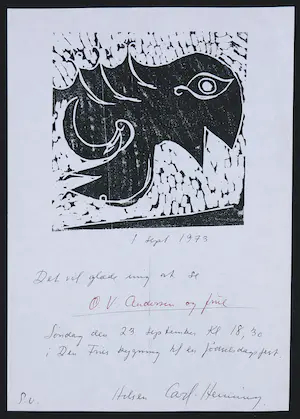 1 sept 1973
Det vil glæde mig at se
O V. Andersen og frue
Søndag den 23 september Kl 18,30
i Den Fries bygning til en fødselsdagsfest.
S.U. Hilsen Carl-Henning.